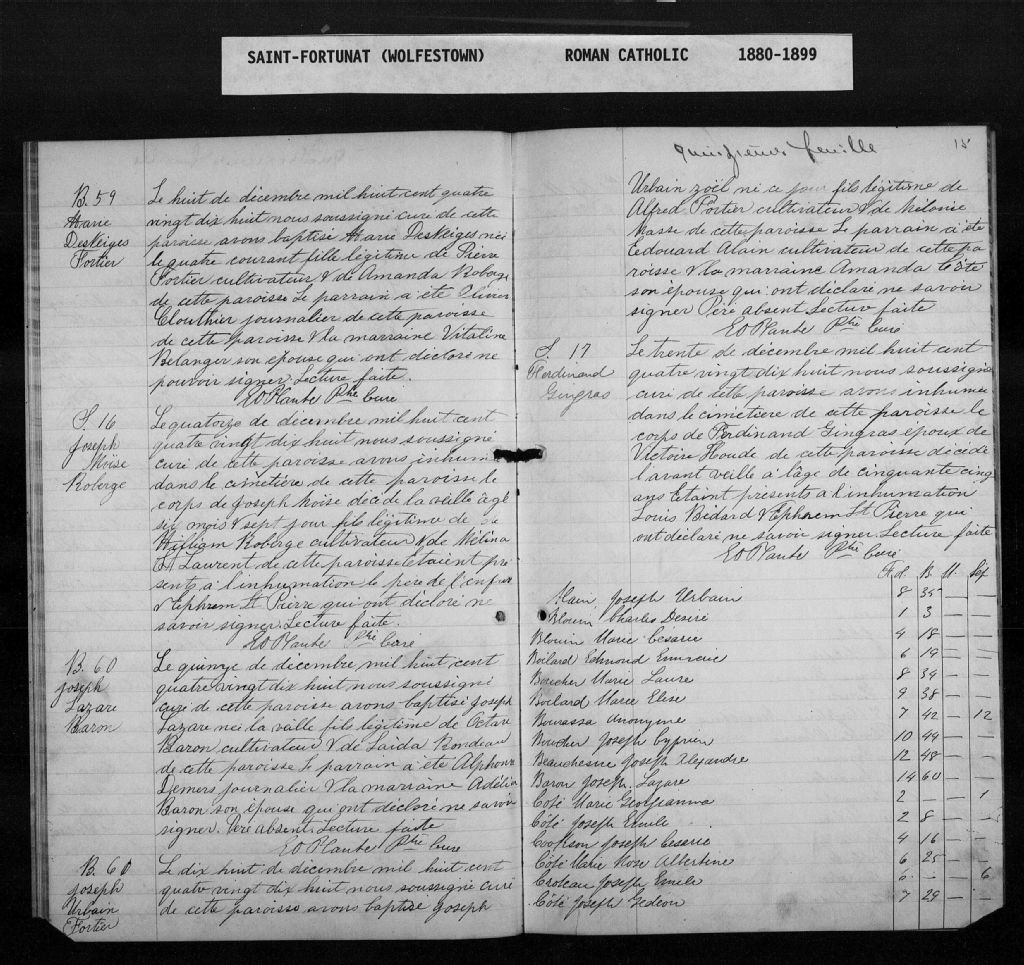 SAINT-FORTUNAT (WOLFESTOWN) ROMAN CATHOLIC 1880-1899
B. 59
Marie
Desneiges
Fortier
Le huit de décembre mil huit cent quatre
vingt dix huit nous soussigné curé de cette
paroisse avons baptisé Marie Desneiges née
le quatre courant fille légitime de Pierre
Fortier cultivateur & de Amanda Roberge
de cette paroisse Le parrain a été Olivier
Clouthier journalier de cette paroisse
de cette paroisse & la marraine Vitaline
Belanger son épouse qui ont déclaré ne
pouvoir signer. Lecture faite.
Ed Plante Ptre curé
S. 16
Joseph
Moïse
Roberge
Le quatorze de décembre mil huit cent
quatre vingt dix huit nous soussigné
curé de cette paroisse avons inhumé
dans le cimetière de cette paroisse le
corps de Joseph Moïse décédé la veille âgé
six mois & sept jour fils légitime de
William Roberge cultivateur & de Mélina
St Laurent de cette paroisse Etaient pré
sents à l'inhumation le père de l'enfant
& Ephrem St Pierre qui ont déclaré ne
savoir signer. Lecture faite.
Ed Plante Ptre curé
B. 60
Joseph
Lazare
Baron
Le quinze de décembre mil huit cent
quatre vingt dix huit nous soussigné
curé de cette paroisse avons baptisé Joseph
Lazare né la veille fils légitime de Octave
Baron cultivateur & de Laïda Rondeau
de cette paroisse Le parrain a été Alphonse
Demers journalier & la marraine Adélia
Baron son épouse qui ont déclaré ne savoir
signer. Père absent. Lecture faite
Ed Plante Ptre curé
B. 60
Joseph
Urbain
Fortier
Le dix huit de décembre mil huit cent
quatre vingt dix huit nous soussigné curé
de cette paroisse avons baptisé Joseph
quinzième feuille 15
Urbain zoël né ce jour fils légitime de
Alfred Fortier cultivateur & de Mélonie
Masse de cette paroisse Le parrain a été
Edouard Alain cultivateur de cette pa
roisse & la marraine Amanda Côté
son épouse qui ont déclaré ne savoir
signer Père absent Lecture faite
Ed Plante Ptre curé
S. 17
Ferdinand
Gingras
Le trente de décembre mil huit cent
quatre vingt dix huit nous soussigné
curé de cette paroisse avons inhumé
dans le cimetière de cette paroisse le
corps de Ferdinand Gingras époux de
Victoire Houde de cette paroisse décédé
l'avant veille à l'âge de cinquante cinq
ans Etaint présents à l'inhumation
Louis Bédard & Ephrem St Pierre qui
ont déclaré ne savoir signer. Lecture faite
Ed Plante Ptre curé
B. M. Sep
Alain, Joseph Urbain 8 35 — —
Blouin Charles Désiré 1 3 — —
Blouin Marie Césarie 4 18 — —
Boilard Edmond 6 19 — —
Boucher Marie Laure 8 34 — —
Boilard Marie Elise 9 38 — —
Bouvassa Anonyme 7 42 — 12
Boucher Joseph Cyprien 10 44 — —
Beauchesne Joseph Alexandre 12 48 — —
Baron Joseph Lazare 14 60 — —
Coté Marie Georgianna 2 — — 1
Côté Joseph Emile 2 8 — —
Cookson Joseph 4 16 — —
Côté Marie Rose Albertine 6 25 — —
Croteau Joseph Emile 6 — — 6
Côté Joseph Gédéon 7 29 — —